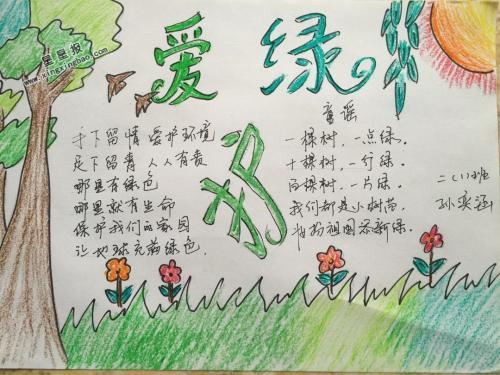 星星报
www.xingxingbao.com
爱绿
护
手下留情 爱护环境
足下留青 人人有责
哪里有绿色
哪里就有生命
保护我们的家园
让地球充满绿色.
童谣
一棵树，一点绿.
十棵树，一行绿.
百棵树，一片绿.
我们都是小树苗，
装扮祖国添新绿.
二(1)班